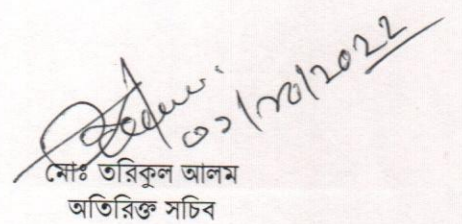 ০১/১০/২০২২
মোঃ তরিকুল আলম
অতিরিক্ত সচিব